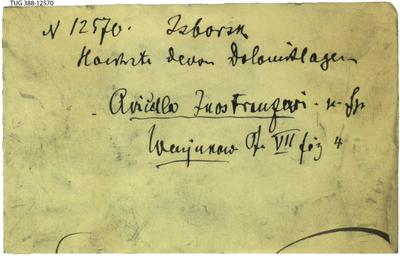 TUG 388-12570
N 12570. Isborsk
devon Dolomitlagen
Avicula Inostranzewi n. sp
Wenjukow Tf. VII fig 4